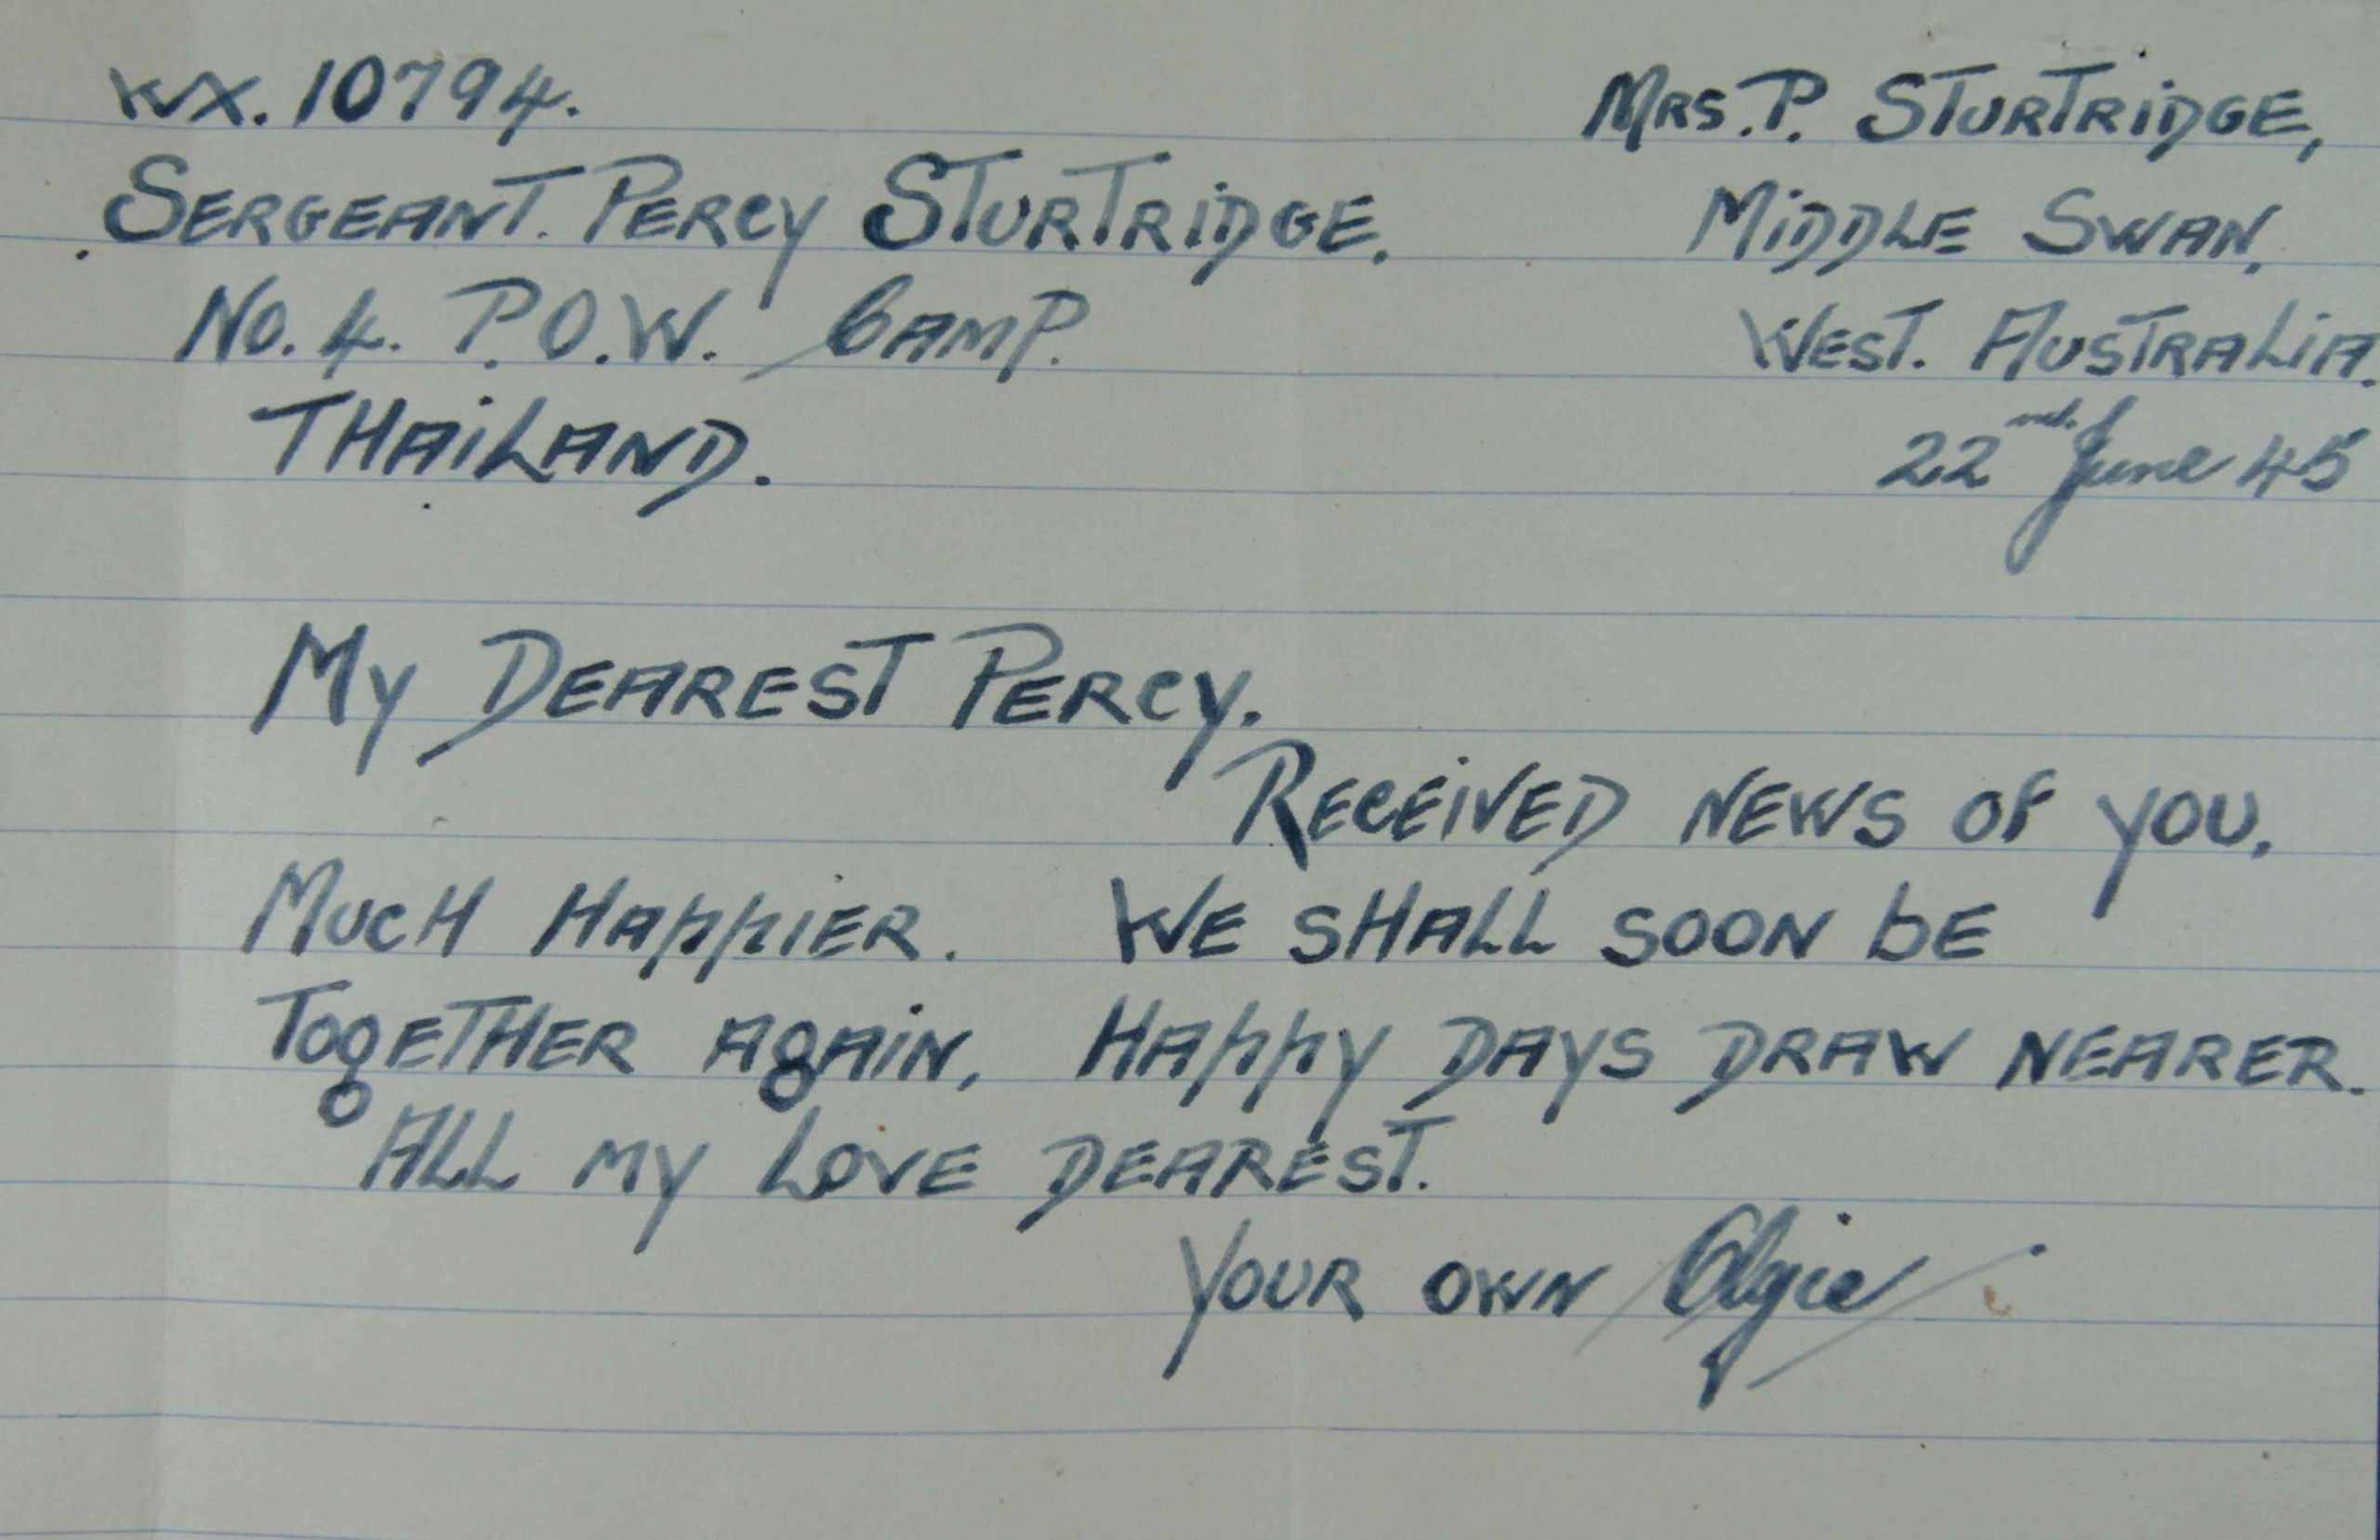 WX. 10794.
SERGEANT. PERCY STURTRIDGE.
No. 4. P.O.W. CAMP.
THAILAND.
MRS. P. STURTRIDGE,
MIDDLE SWAN,
WEST. AUSTRALIA.
22nd. June 45
MY DEAREST PERCY.
RECEIVED NEWS OF YOU.
MUCH HAPPIER. WE SHALL SOON BE
TOGETHER AGAIN. HAPPY DAYS DRAW NEARER.
ALL MY LOVE DEAREST.
YOUR OWN Olgie